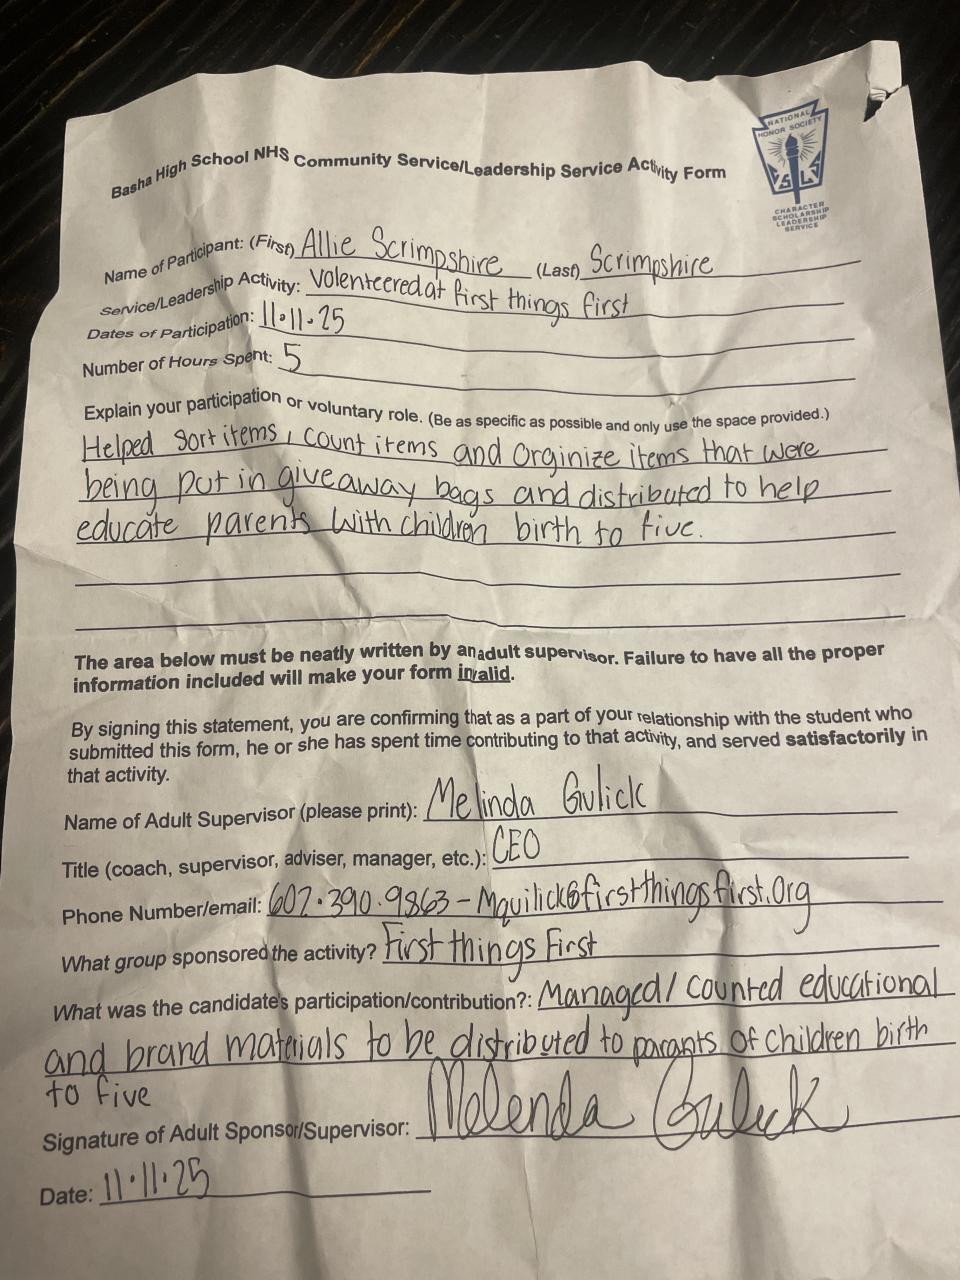 Basha High School NHS Community Service/Leadership Service Activity Form
NATIONAL
HONOR SOCIETY
CHARACTER
SCHOLARSHIP
LEADERSHIP
SERVICE
Name of Participant: (First) Allie Scrimpshire (Last) Scrimpshire
Service/Leadership Activity: Volenteered at first things first
Dates of Participation: 11.11.25
Number of Hours Spent: 5
Explain your participation or voluntary role. (Be as specific as possible and only use the space provided.)
Helped sort items, count items and Orginize items that were
being put in giveaway bags and distributed to help
educate parents with children birth to five.
The area below must be neatly written by an adult supervisor. Failure to have all the proper
information included will make your form invalid.
By signing this statement, you are confirming that as a part of your relationship with the student who
submitted this form, he or she has spent time contributing to that activity, and served satisfactorily in
that activity.
Name of Adult Supervisor (please print): Melinda Gulick
Title (coach, supervisor, adviser, manager, etc.): CEO
Phone Number/email: 602.390.9863 - Mquilick@firstthingsfirst.Org
What group sponsored the activity? First things First
What was the candidate's participation/contribution?: Managed/ counted educational
and brand materials to be distributed to parants of children birth
to five
Signature of Adult Sponsor/Supervisor: Melenda Gulick
Date: 11.11.25